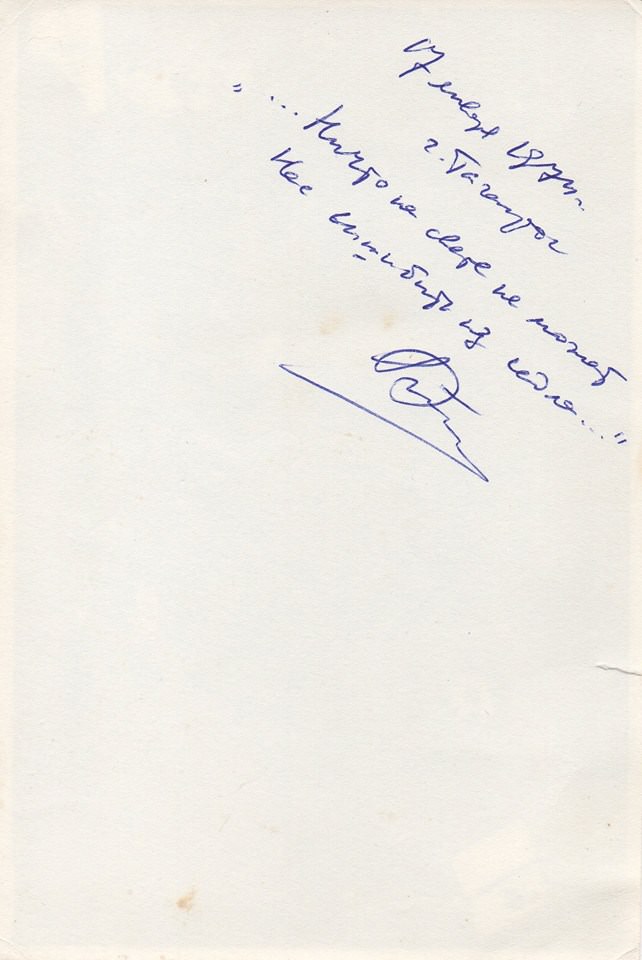 17 января
г. Таганрог
"... Ничто на свете не может
Нас вышибить из седла..."